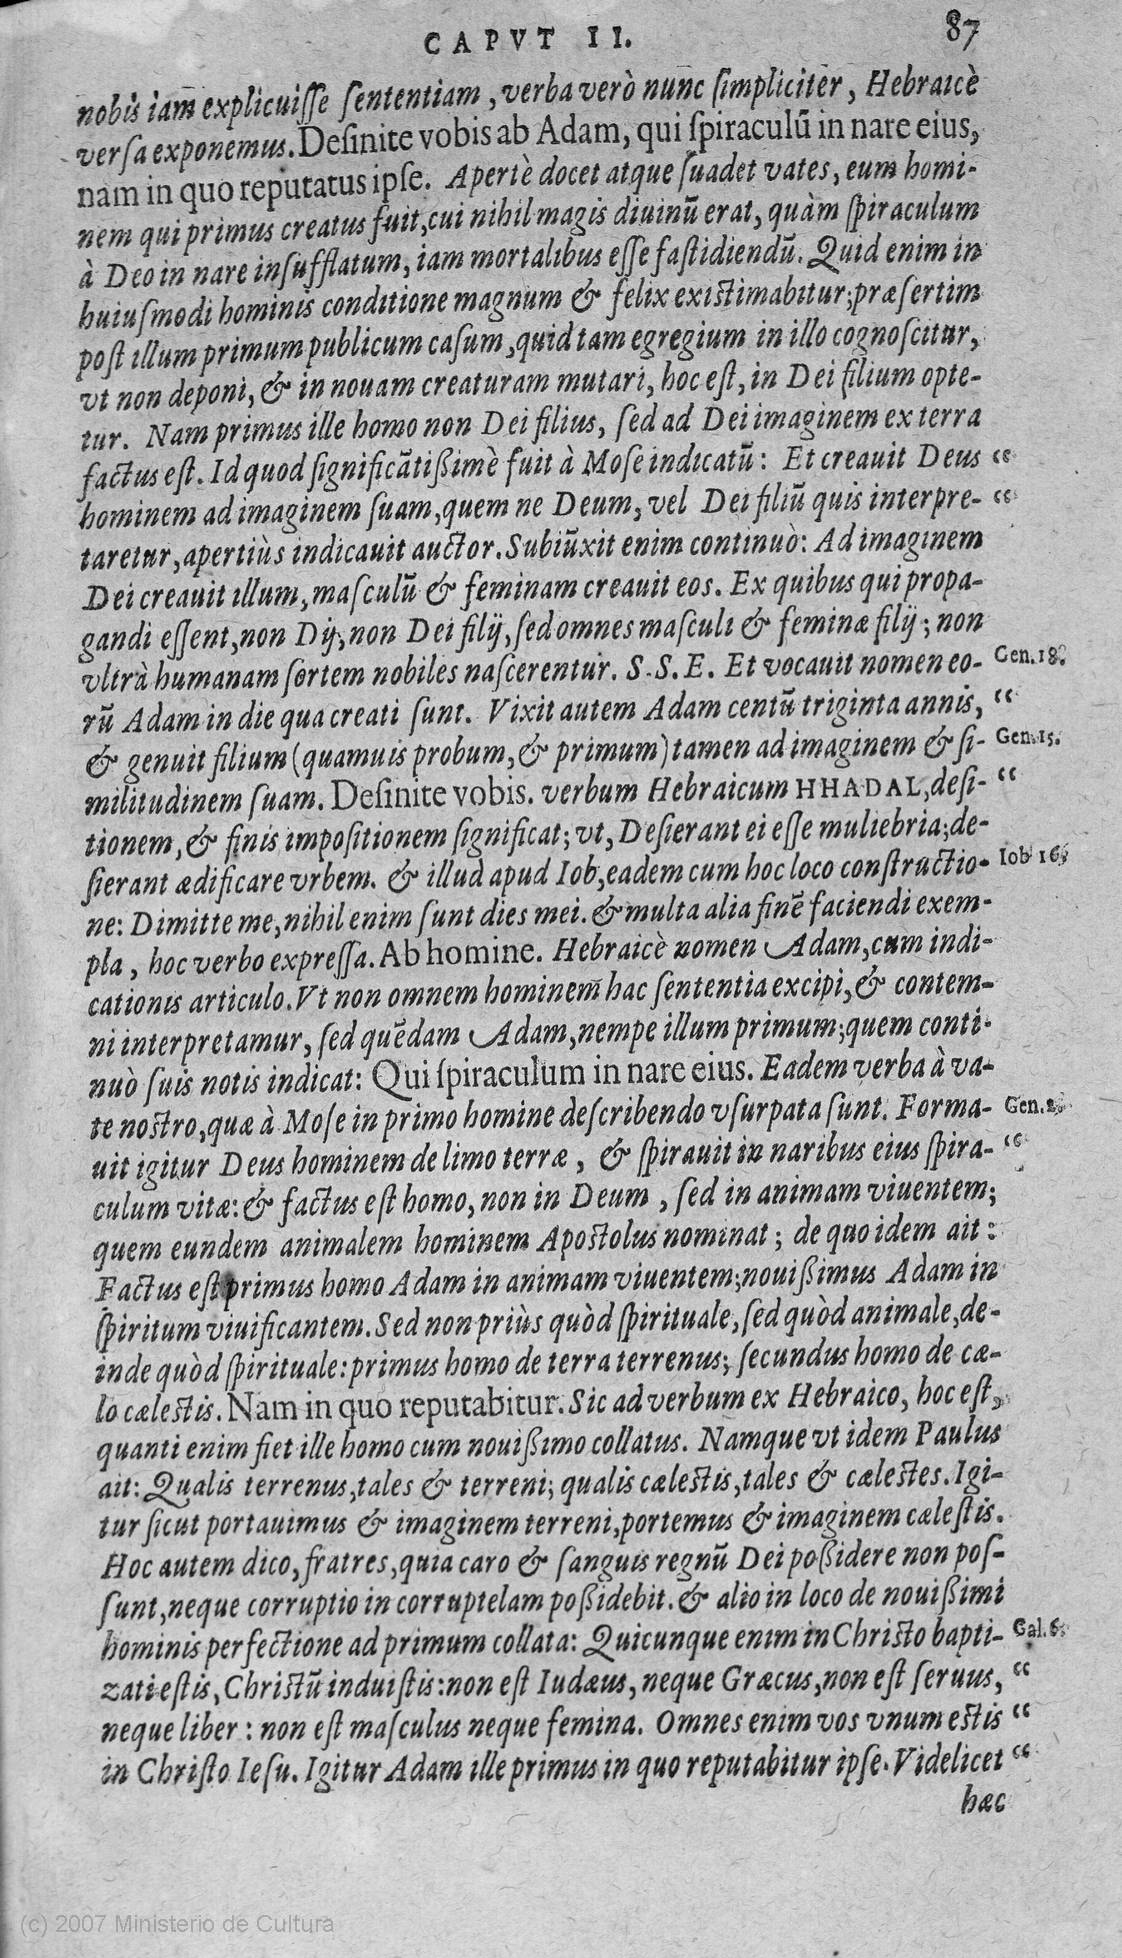 CAPVT II. 87
nobis iam explicuiſſe ſententiam, verba verò nunc ſimpliciter, Hebraicè
verſa exponemus. Deſinite vobis ab Adam, qui ſpiraculũ in nare eius,
nam in quo reputatus ipſe. Apertè docet atque ſuadet vates, eum homi-
nem qui primus creatus fuit, cui nihil magis diuinũ erat, quàm ſpiraculum
à Deo in nare inſufflatum, iam mortalibus eſſe faſtidiendũ. Quid enim in
huiuſmodi hominis conditione magnum & felix exiſtimabitur; præſertim
poſt illum primum publicum caſum, quid tam egregium in illo cognoſcitur,
vt non deponi, & in nouam creaturam mutari, hoc eſt, in Dei filium opte-
tur. Nam primus ille homo non Dei filius, ſed ad Dei imaginem ex terra
factus eſt. Id quod ſignificãtißimè fuit à Moſe indicatũ: Et creauit Deus “
hominem ad imaginem ſuam, quem ne Deum, vel Dei filiũ quis interpre- “
taretur, apertiùs indicauit auctor. Subiũxit enim continuò: Ad imaginem
Dei creauit illum, maſculũ & feminam creauit eos. Ex quibus qui propa-
gandi eſſent, non Dij, non Dei filij, ſed omnes maſculi & feminæ filij; non
vltrà humanam ſortem nobiles naſcerentur. S.S.E. Et vocauit nomen eo- Gen.18.
rũ Adam in die qua creati ſunt. Vixit autem Adam centũ triginta annis, “
& genuit filium (quamuis probum, & primum) tamen ad imaginem & ſi- Gen.15.
militudinem ſuam. Deſinite vobis. verbum Hebraicum HHADAL, deſi- “
tionem, & finis impoſitionem ſignificat; vt, Deſierant ei eſſe muliebria; de-
ſierant ædificare vrbem. & illud apud Iob, eadem cum hoc loco conſtructio- Iob 16
ne: Dimitte me, nihil enim ſunt dies mei. & multa alia finẽ faciendi exem-
pla, hoc verbo expreſſa. Ab homine. Hebraicè nomen Adam, cum indi-
cationis articulo. Vt non omnem hominem hac ſententia excipi, & contem-
ni interpretamur, ſed quẽdam Adam, nempe illum primum; quem conti-
nuò ſuis notis indicat: Qui ſpiraculum in nare eius. Eadem verba à va-
te noſtro, quæ à Moſe in primo homine deſcribendo vſurpata ſunt. Forma- Gen.2
uit igitur Deus hominem de limo terræ, & ſpirauit in naribus eius ſpira- “
culum vitæ: & factus eſt homo, non in Deum, ſed in animam viuentem;
quem eundem animalem hominem Apoſtolus nominat; de quo idem ait:
Factus eſt primus homo Adam in animam viuentem; nouißimus Adam in
ſpiritum viuificantem. Sed non priùs quòd ſpirituale, ſed quòd animale, de-
inde quòd ſpirituale: primus homo de terra terrenus; ſecundus homo de cæ-
lo cæleſtis. Nam in quo reputabitur. Sic ad verbum ex Hebraico, hoc eſt,
quanti enim fiet ille homo cum nouißimo collatus. Namque vt idem Paulus
ait: Qualis terrenus, tales & terreni; qualis cæleſtis, tales & cæleſtes. Igi-
tur ſicut portauimus & imaginem terreni, portemus & imaginem cæleſtis.
Hoc autem dico, fratres, quia caro & ſanguis regnũ Dei poßidere non poſ-
ſunt, neque corruptio in corruptelam poßidebit. & alio in loco de nouißimi
hominis perfectione ad primum collata: Quicunque enim in Chriſto bapti- Gal.6.
zati eſtis, Chriſtũ induiſtis: non eſt Iudæus, neque Græcus, non eſt ſeruus, “
neque liber: non eſt maſculus neque femina. Omnes enim vos vnum eſtis “
in Chriſto Ieſu. Igitur Adam ille primus in quo reputabitur ipſe. Videlicet “
hæc
(c) 2007 Ministerio de Cultura